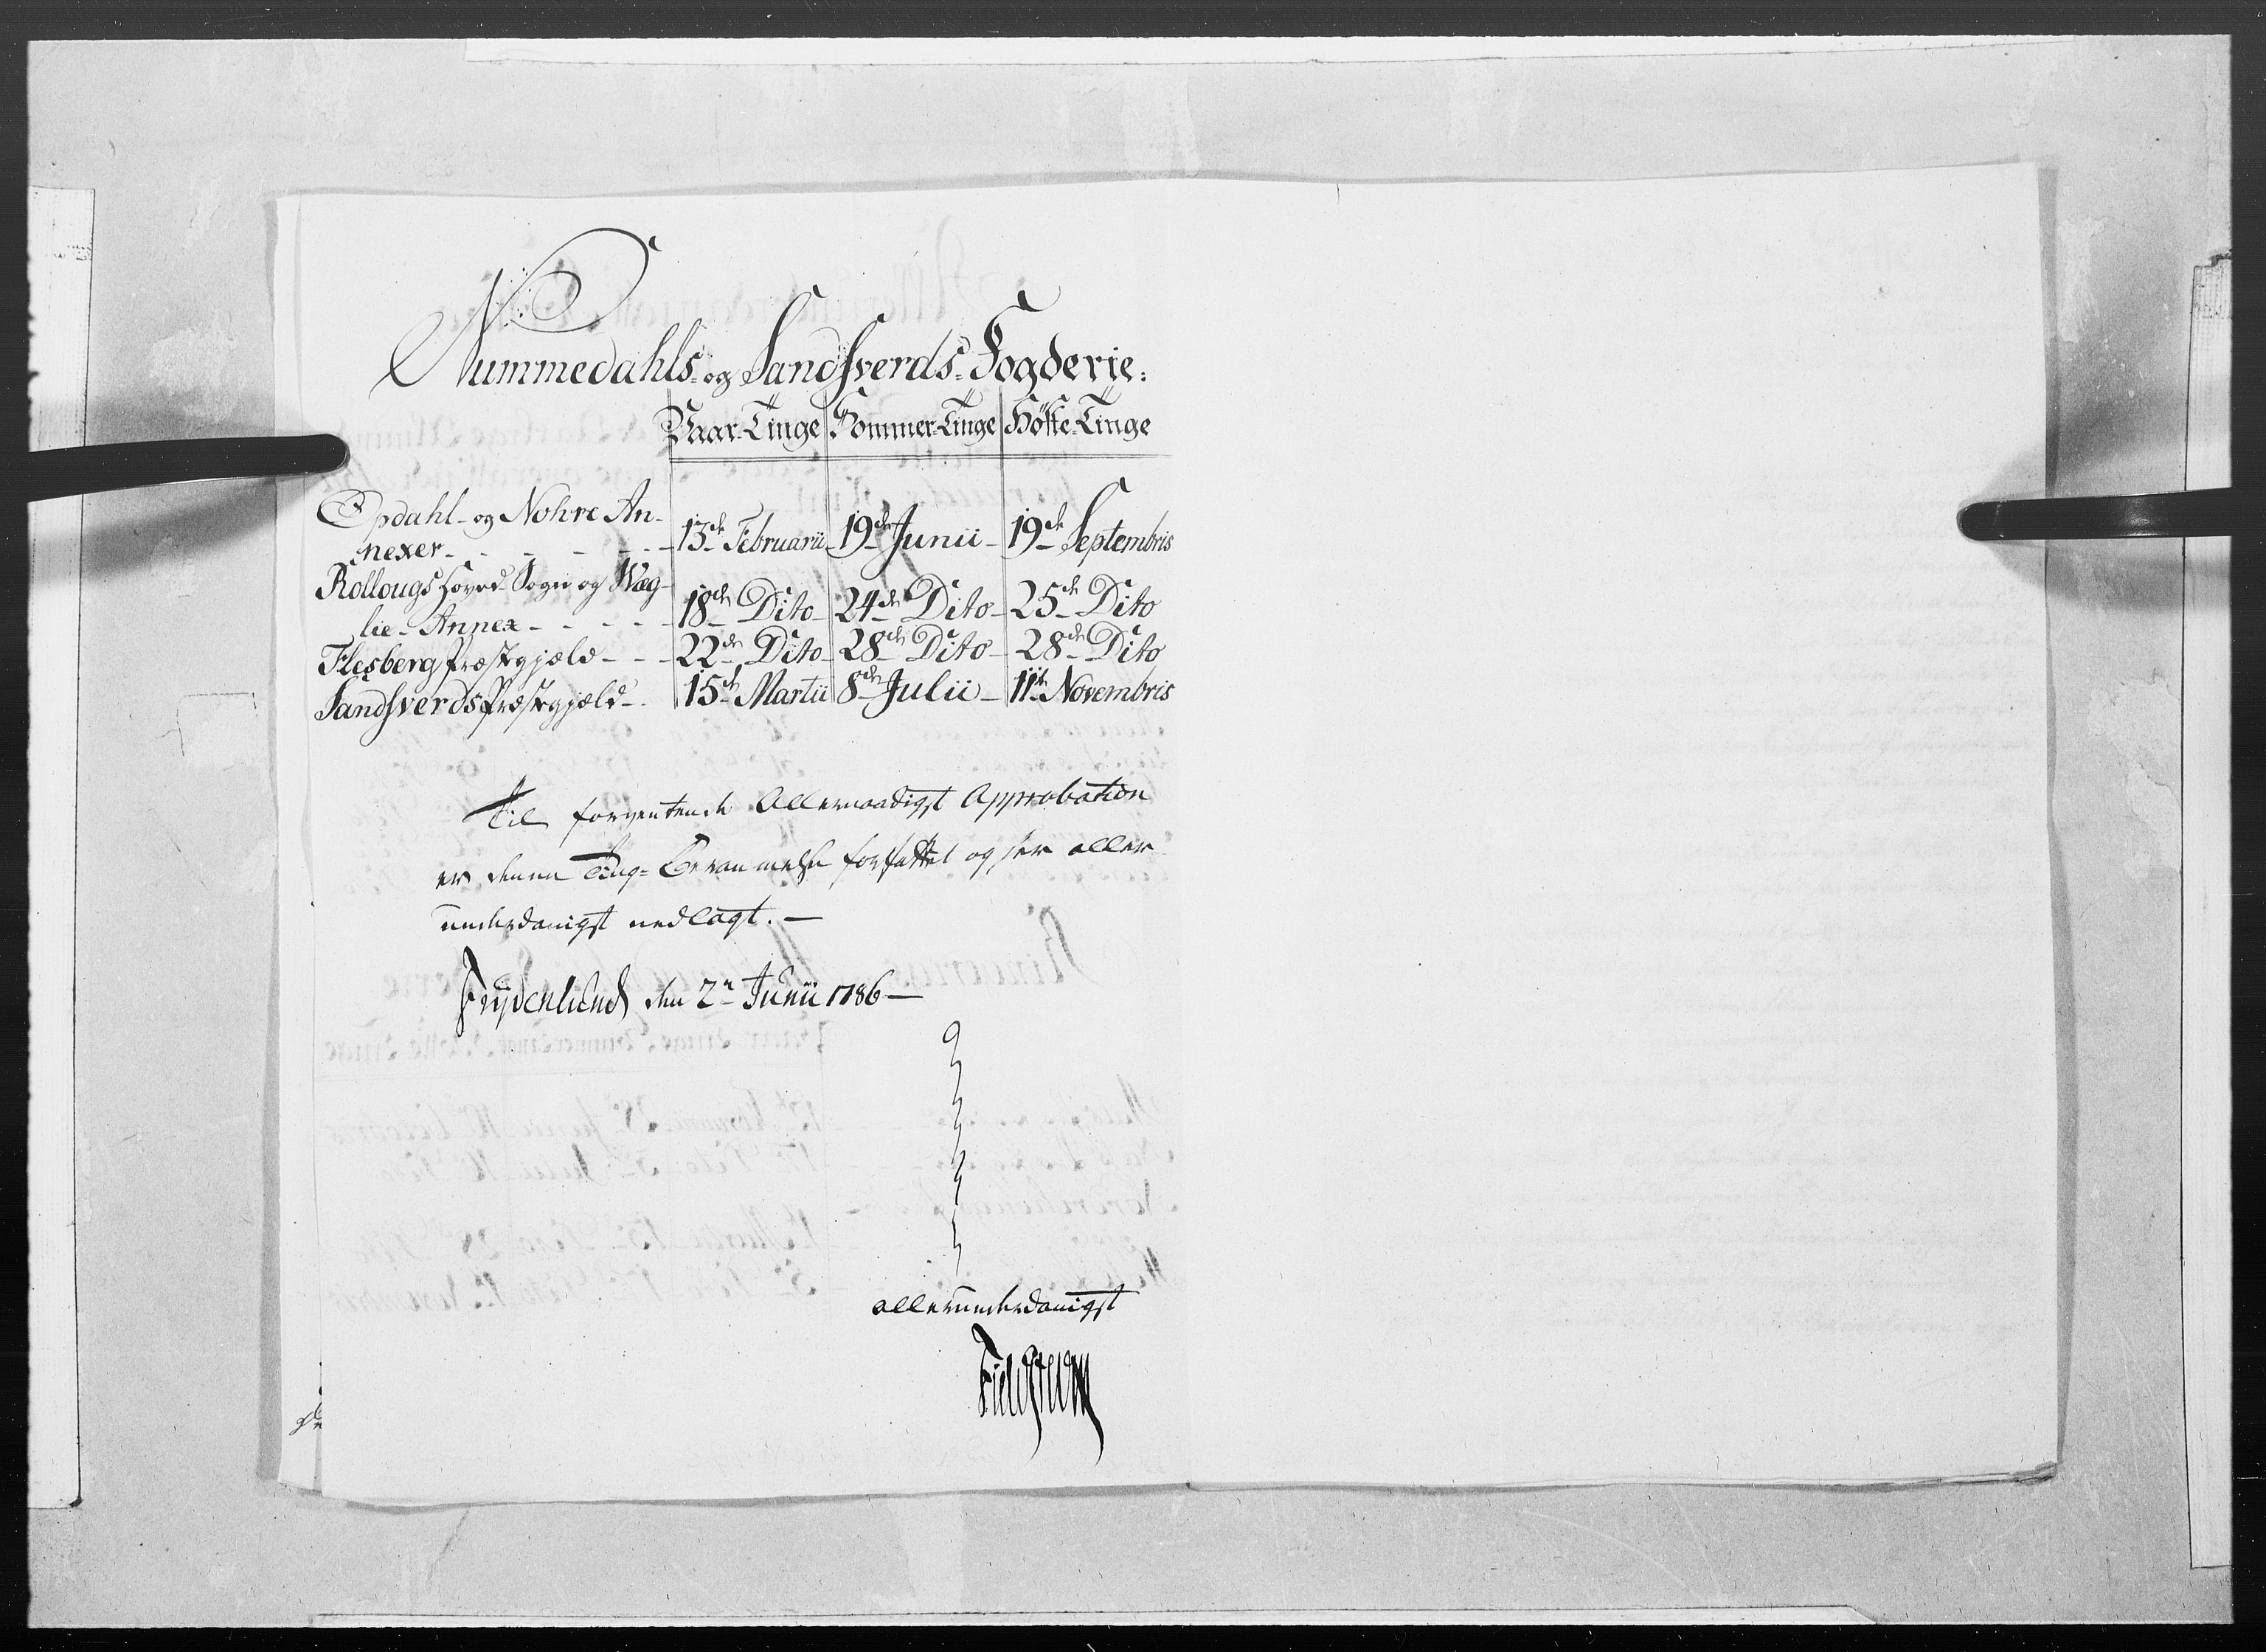 Nummedahls- og Sandsverds-Fogderie:
Vaar-Tinge Sommer-Tinge Höste-Tinge
Opdahl- og Nohre An-
nexer - - - - - - 13de Februarii 19de Junii 19de Septembris
Rollougs Hoved-Sogn og Weg-
lie-Annex - - - - - 18de Dito 24de Dito 25de Dito
Flesberg Præstegjæld - - - 22de Dito 28de Dito 28de Dito
Sandsverds Præstegjæld - 15de Martii 8de Julii 11te Novembris
Til forventende Allernaadigst Approbation
er denne Ting-Berammelse forfattet og her aller-
underdanigst nedlagt. —
Frydenlund den 2n Junii 1786 —
allerunderdanigst
Fieldsted